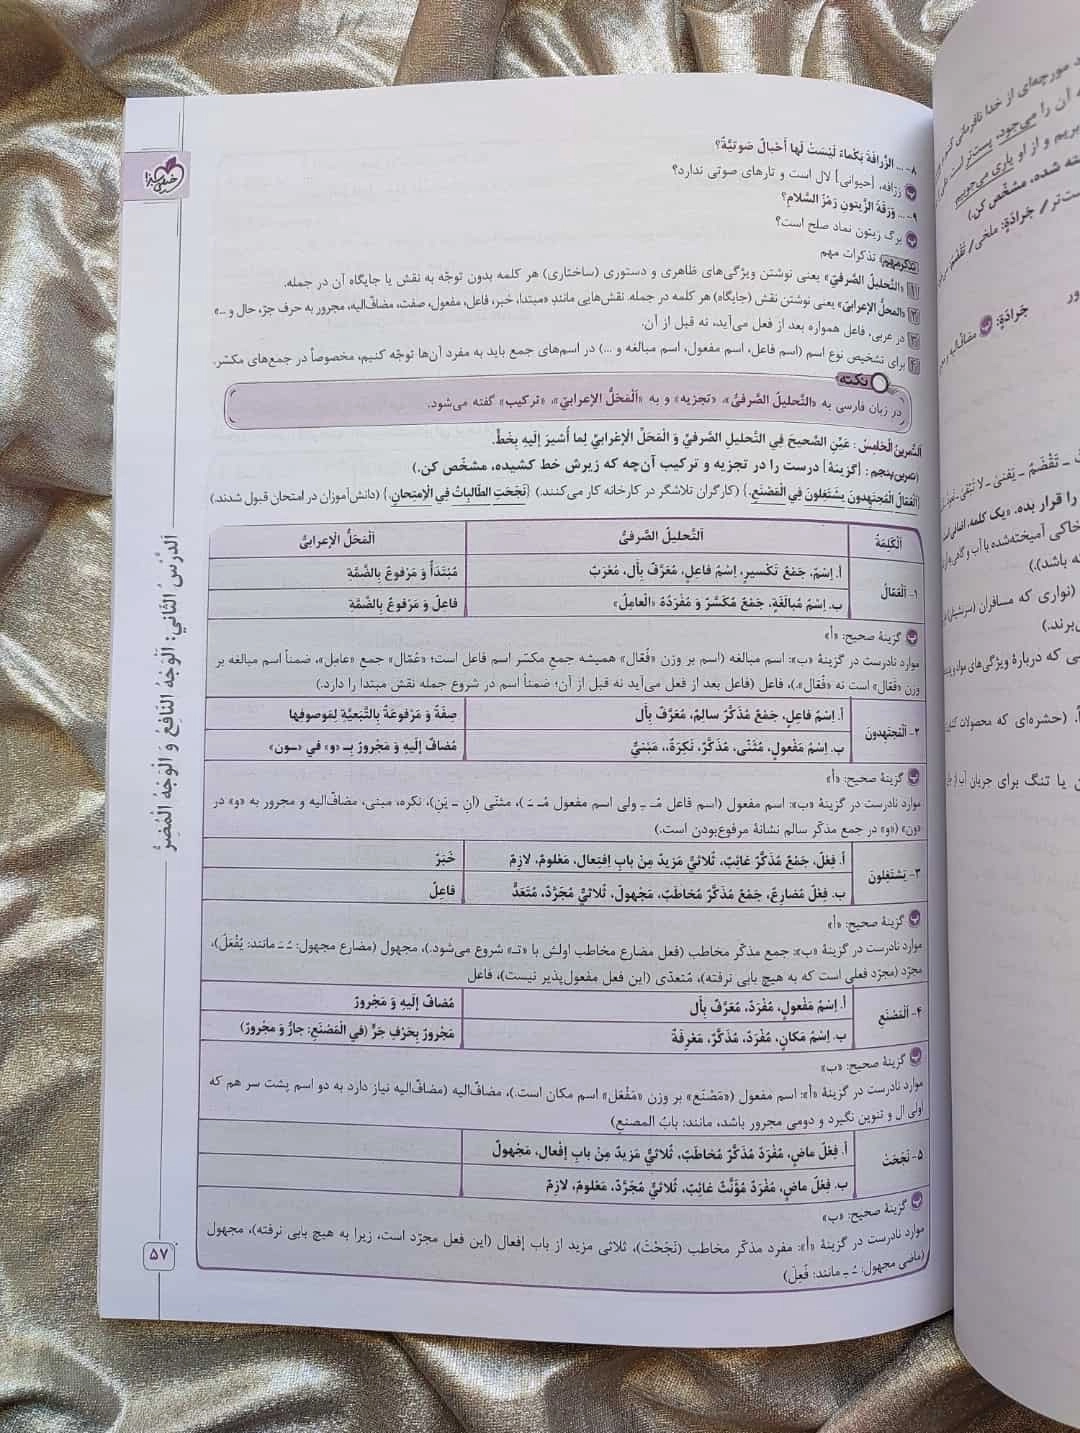 ۸- ... الزَّرافَةُ بَکْماءُ لَیْسَتْ لَها أَحْبالٌ صَوتیَّةٌ؟
زرافه، [حیوانی] لال است و تارهای صوتی ندارد؟
۹- ... وَرَقَةُ الزَّیتونِ رَمْزُ السَّلامِ؟
برگ زیتون نماد صلح است؟
تذکر مهم تذکرات مهم
۱ «التَّحلیلُ الصَّرفیُّ» یعنی نوشتن ویژگی‌های ظاهری و دستوری (ساختاری) هر کلمه بدون توجّه به نقش یا جایگاه آن در جمله.
۲ «المحلُّ الإعرابیُّ» یعنی نوشتن نقش (جایگاه) هر کلمه در جمله. نقش‌هایی مانند «مبتدا، خبر، فاعل، مفعول، صفت، مضافٌ‌الیه، مجرور به حرف جرّ، حال و ...»
۳ در عربی، فاعل همواره بعد از فعل می‌آید، نه قبل از آن.
۴ برای تشخیص نوع اسم (اسم فاعل، اسم مفعول، اسم مبالغه و ...) در اسم‌های جمع باید به مفرد آن‌ها توجّه کنیم، مخصوصاً در جمع‌های مکسّر.
نکته
در زبان فارسی به «التَّحلیلُ الصَّرفیُّ»، «تجزیه» و به «اَلْمَحَلُّ الإعرابیّ»، «ترکیب» گفته می‌شود.
اَلتَّمرینُ الْخامِسُ: عَیِّنِ الصَّحیحَ فِي التَّحلیلِ الصَّرفيِّ وَ الْمَحَلِّ الْإعْرابيِّ لِما أُشیرَ إلَیهِ بِخَطٍّ.
(تمرین پنجم: [گزینهٔ] درست را در تجزیه و ترکیب آن‌چه که زیرش خط کشیده، مشخّص کن.)
{اَلْعُمّالُ الْمُجتَهِدونَ یَشتَغِلونَ فِي الْمَصْنَعِ.} (کارگران تلاشگر در کارخانه کار می‌کنند.) {نَجَحَتِ الطّالِباتُ فِي الْإمتِحانِ.} (دانش‌آموزان در امتحان قبول شدند.)
اَلْکَلِمَةُ اَلتَّحلیلُ الصَّرفيُّ اَلْمَحَلُّ الْإعرابيُّ
۱- اَلْعُمّالُ أ. اِسْمٌ، جَمْعُ تَکْسیرٍ، اِسْمُ فاعِلٍ، مُعَرَّفٌ بِأَل، مُعْرَبٌ مُبْتَدَأٌ وَ مَرْفوعٌ بِالضَّمَّةِ
ب. اِسْمُ مُبالَغَةٍ، جَمْعٌ مُکَسَّرٌ وَ مُفْرَدُهُ «الْعامِلُ» فاعِلٌ وَ مَرْفوعٌ بِالضَّمَّةِ
گزینهٔ صحیح: «أ»
موارد نادرست در گزینهٔ «ب»: اسم مبالغه (اسم بر وزن «فُعّال» همیشه جمع مکسّر اسم فاعل است؛ «عُمّال» جمع «عامل»، ضمناً اسم مبالغه بر
وزن «فَعّال» است نه «فُعّال».)، فاعل (فاعل بعد از فعل می‌آید نه قبل از آن؛ ضمناً اسم در شروع جمله نقش مبتدا را دارد.)
۲- اَلْمُجتَهِدونَ أ. اِسْمُ فاعِلٍ، جَمْعُ مُذَکَّرٍ سالِمٌ، مُعَرَّفٌ بِأَل صِفَةٌ وَ مَرْفوعَةٌ بِالتَّبَعیَّةِ لِمَوصوفِها
ب. اِسْمُ مَفْعولٍ، مُثَنّی، مُذَکَّرٌ، نَکِرَةٌ، مَبْنيٌّ مُضافٌ إلَیهِ وَ مَجْرورٌ بِـ «و» في «ـونَ»
گزینهٔ صحیح: «أ»
موارد نادرست در گزینهٔ «ب»: اسم مفعول (اسم فاعل مُـ ـِ ولی اسم مفعول مُـ ـَ)، مثنّی (انِ ـ یْنِ)، نکره، مبنی، مضافٌ‌الیه و مجرور به «و» در
«ون» («و» در جمع مذکّر سالم نشانهٔ مرفوع‌بودن است.)
۳- یَشْتَغِلونَ أ. فِعْلٌ، جَمْعٌ مُذَکَّرٌ غائِبٌ، ثُلاثيٌّ مَزیدٌ مِنْ بابِ اِفْتِعال، مَعْلومٌ، لازِمٌ خَبَرٌ
ب. فِعْلٌ مُضارِعٌ، جَمْعٌ مُذَکَّرٌ مُخاطَبٌ، مَجْهولٌ، ثُلاثيٌّ مُجَرَّدٌ، مُتَعَدٍّ فاعِلٌ
گزینهٔ صحیح: «أ»
موارد نادرست در گزینهٔ «ب»: جمع مذکّر مخاطب (فعل مضارع مخاطب اولش با «تـ» شروع می‌شود.)، مجهول (مضارع مجهول: ـُ ـَ مانند: یُفْعَلُ)،
مجرّد (مجرّد فعلی است که به هیچ بابی نرفته)، مُتعدّی (این فعل مفعول‌پذیر نیست)، فاعل
۴- اَلْمَصْنَعِ أ. اِسْمُ مَفْعولٍ، مُفْرَدٌ، مُعَرَّفٌ بِأَل مُضافٌ إلَیهِ وَ مَجْرورٌ
ب. اِسْمُ مَکانٍ، مُفْرَدٌ، مُذَکَّرٌ، مَعْرِفَةٌ مَجْرورٌ بِحَرْفِ جَرٍّ (فِي الْمَصْنَعِ: جارٌّ وَ مَجْرورٌ)
گزینهٔ صحیح: «ب»
موارد نادرست در گزینهٔ «أ»: اسم مفعول («مَصْنَع» بر وزن «مَفْعَل» اسم مکان است.)، مضافٌ‌الیه (مضافٌ‌الیه نیاز دارد به دو اسم پشت سر هم که
اولی ال و تنوین نگیرد و دومی مجرور باشد، مانند: بابُ المصنعِ)
۵- نَجَحَتْ أ. فِعْلٌ ماضٍ، مُفْرَدٌ مُذَکَّرٌ مُخاطَبٌ، ثُلاثيٌّ مَزیدٌ مِنْ بابِ إفْعال، مَجْهولٌ
ب. فِعْلٌ ماضٍ، مُفْرَدٌ مُؤَنَّثٌ غائِبٌ، ثُلاثيٌّ مُجَرَّدٌ، مَعْلومٌ، لازِمٌ
گزینهٔ صحیح: «ب»
موارد نادرست در گزینهٔ «أ»: مفرد مذکّر مخاطب (نَجَحْتَ)، ثلاثی مزید از باب إفعال (این فعل مجرّد است، زیرا به هیچ بابی نرفته)، مجهول
(ماضی مجهول: ـُ ـِ مانند: فُعِلَ)
اَلدَّرْسُ الثّاني: اَلْوَجْهُ النّافِعُ وَ الْوَجْهُ الْمُضِرُّ
۵۷
خیلی سبز